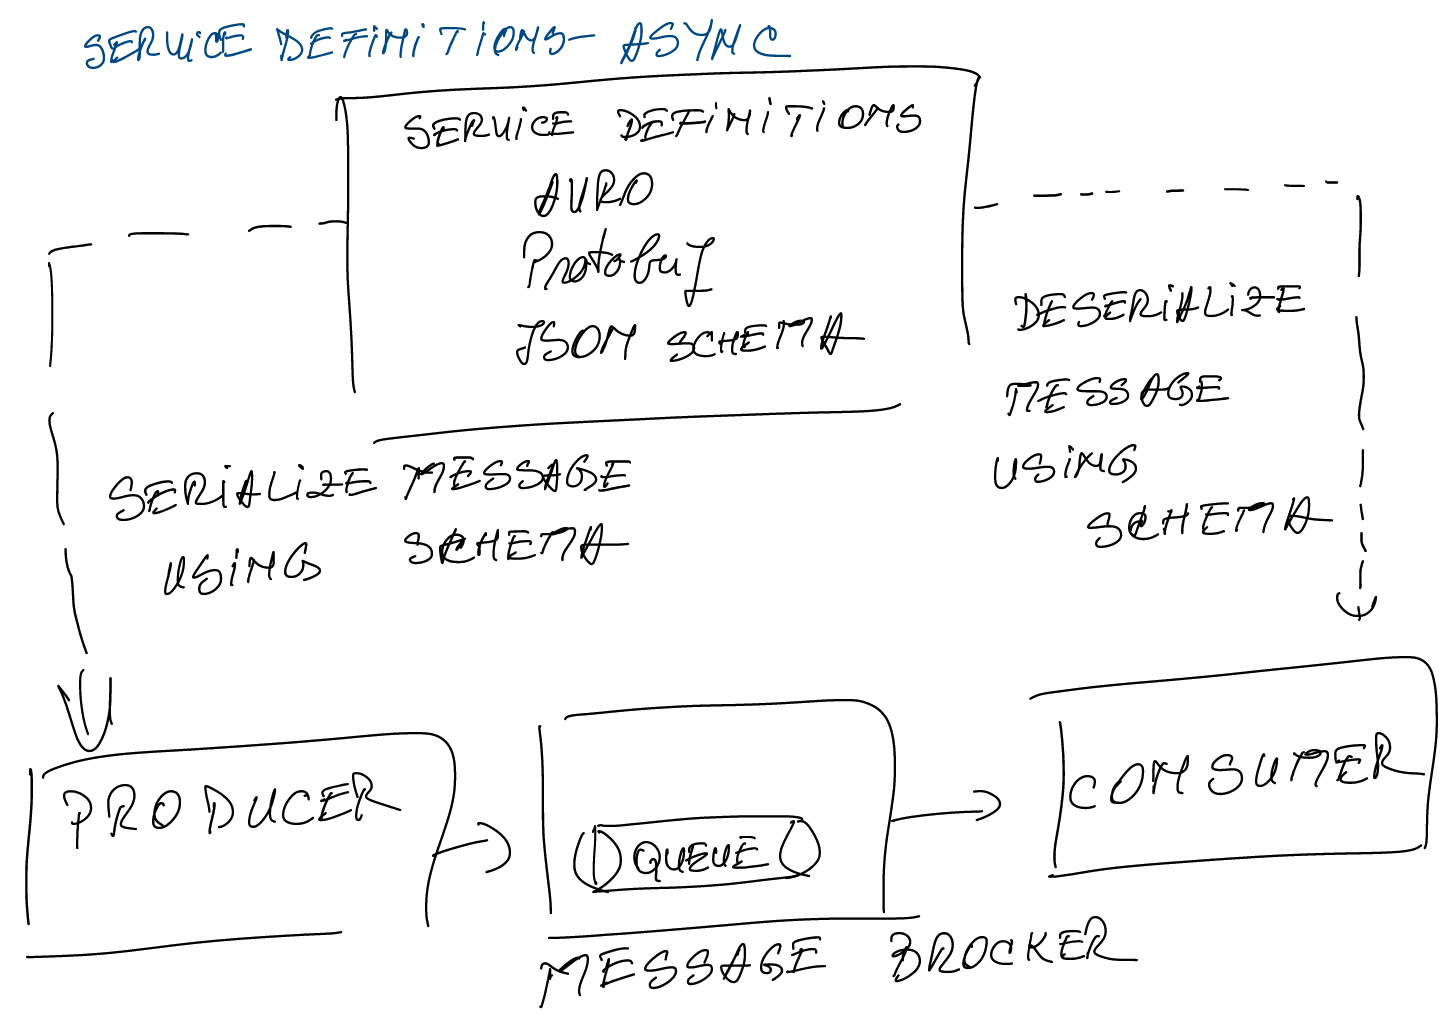 SERViCE DEFiNiTiONS- ASYNC
SERViCE DEFiNiTiONS
AVRO
Protobuf
JSON SCHEMA
SERiALiZE MESSAGE
USiNG SCHEMA
DESERiALiZE
MESSAGE
USiNG
SCHEMA
PRODUCER
QUEUE
CONSUMER
MESSAGE BROCKER